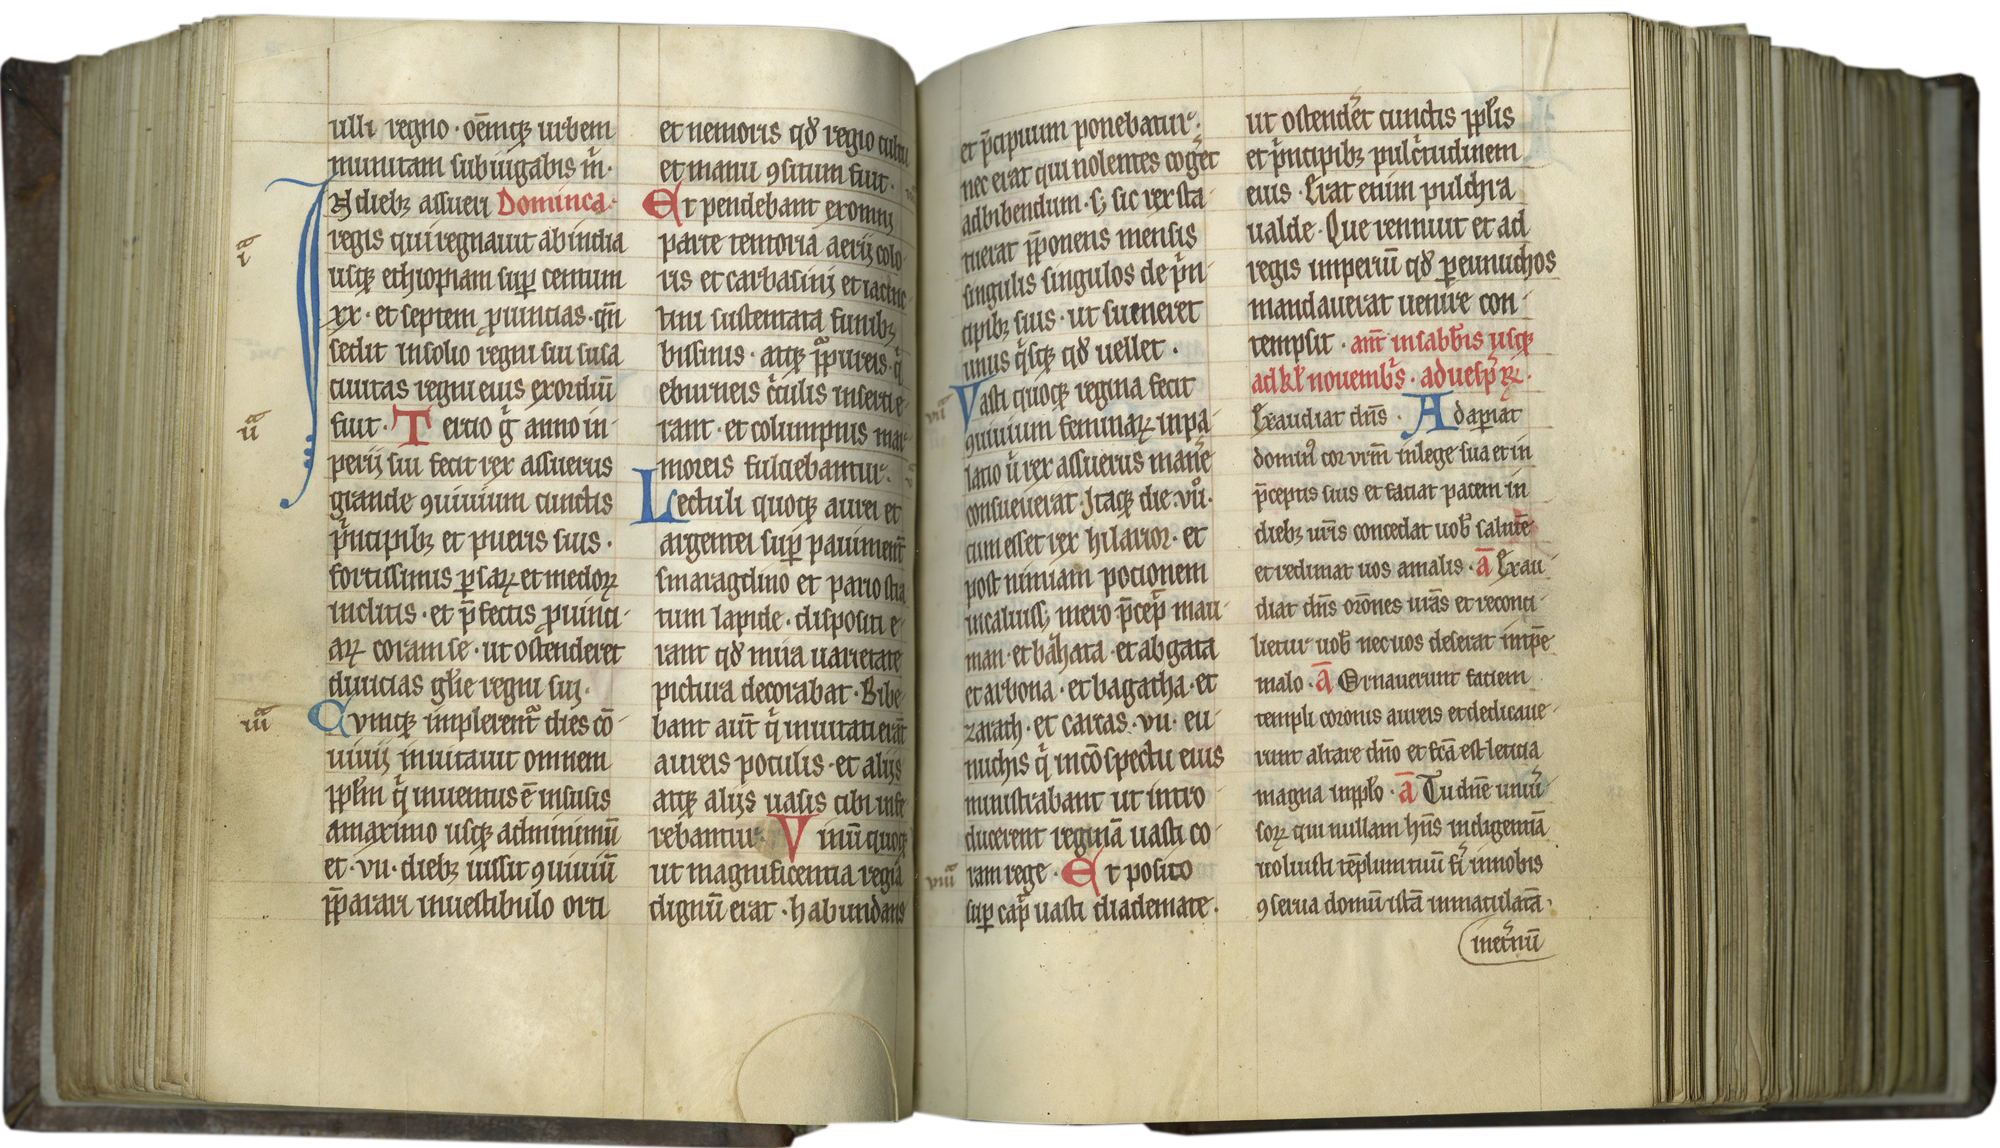 ulli regno · oēmq̨ urbem
munitam subiugabis m̄ ·
In dieb; assueri Dominica ·
regis qui regnauit ab india
usq̨ ethiopiam sup̱ centum
xx · et septem ꝓuincias · qn̄
sedit in solio regni sui susa
ciuitas regni eius exordiū
fuit · Tertio g̊ anno im-
perij sui fecit rex assuerus
grande ꝯuiuium cunctis
pͥncipib; et pueris suis ·
fortissimis ꝑsaꝝ et medoꝝ
inclitis · et p̄fectis ꝓuinci-
aꝝ coram se · ut ostenderet
diuicias gl̄ie regni sui ·
Cumq̨ implerentᷓ dies cō-
uiuij inuitauit omnem
pp̄lm qͥ inuentus ē in susis
a maximo usq̨ ad minimū
et · vii · dieb; iussit ꝯuiuiū
p̄parari in uestibulo orti
iª
iiª
iiiª
et nemoris qd̄ regio cultu
et manu ꝯsitum fuit ·
Et pendebant ex omni
parte tentoria aerij colo-
ris et carbasini et iacinc-
tini sustentata funib;
bissinis · atq̨ p̱pureis · qͥ
eburneis cͥculis inserti e-
rant · et columpnis mar-
moreis fulciebantur ·
Lectuli quoq̨ aurei et
argentei sup̱ pauiment̄
smaragdino et pario stra-
tum lapide · dispositi e-
rant qd̄ mira uarietate
pictura decorabat · Bibe-
bant aut̄ qͥ inuitati erāt
aureis poculis · et alijs
atq̨ alijs uasis cibi infe-
rebantur · Vinū quoq̨
ut magnificentia regia
dignū erat · habundans
et p̄cipuum ponebatur ·
nec erat qui nolentes cog̉et
ad bibendum · s; sic rex sta-
tuerat p̄ponens mensis
singulis singulos de pͥn-
cipib; suis · ut sumeret
unus qͥsq̨ qd̄ uellet ·
viiª
Vasti quoq̨ regina fecit
ꝯuiuium feminaꝝ in pa-
latio u̇ rex assuerus man̉e
consueuerat · Itaq̨ die · vii̊ ·
cum esset rex hilarior · et
post nimiam potionem
incaluiss; mero p̄cep̱ mau-
man · et bahata · et abgata
et arbona · et bagatha · et
zarath · et carcas · vii · eu-
nuchis qͥ in cōspectu eius
ministrabant ut intro-
ducerent reginā uasti co-
ram rege · Et posito
viiiª
sup̱ cap̱ uasti diademate ·
ut ostend̉et cunctis pp̄lis
et pͥncipib; pulcͥtudinem
eius · Erat enim pulchra
ualde · Que rennuit et ad
regis imperiū qd̄ ꝑ eunuchos
mandauerat uenire con-
tempsit · ant̄ in sabb̄is usq̨
ad kl̄ nouemb̉s · ad uesp̱aꝝ ·
Exaudiat dn̄s · Adaꝑiat
domin᷒ cor vr̄m in lege sua et in
p̄ceptis suis et faciat pacem in
dieb; ur̄is concedat uob̄ salutē
et redimat uos a malis · ā Exau-
diat dn̄s or̄ones ur̄as et reconci-
lietur uob̄ nec uos deserat in tp̄e
malo · ā Ornauerunt faciem
templi coronis aureis et dedicaue-
runt altare dn̄o et fc̄a est leticia
magna in pp̄lo · ā Tu dn̄e uniu̓-
soꝝ qui nullam hn̄s indigentiā
uoluisti tēplum tuū fi̓ in nobis
ꝯserua domū istā inmaculatā ·
in et̉nū